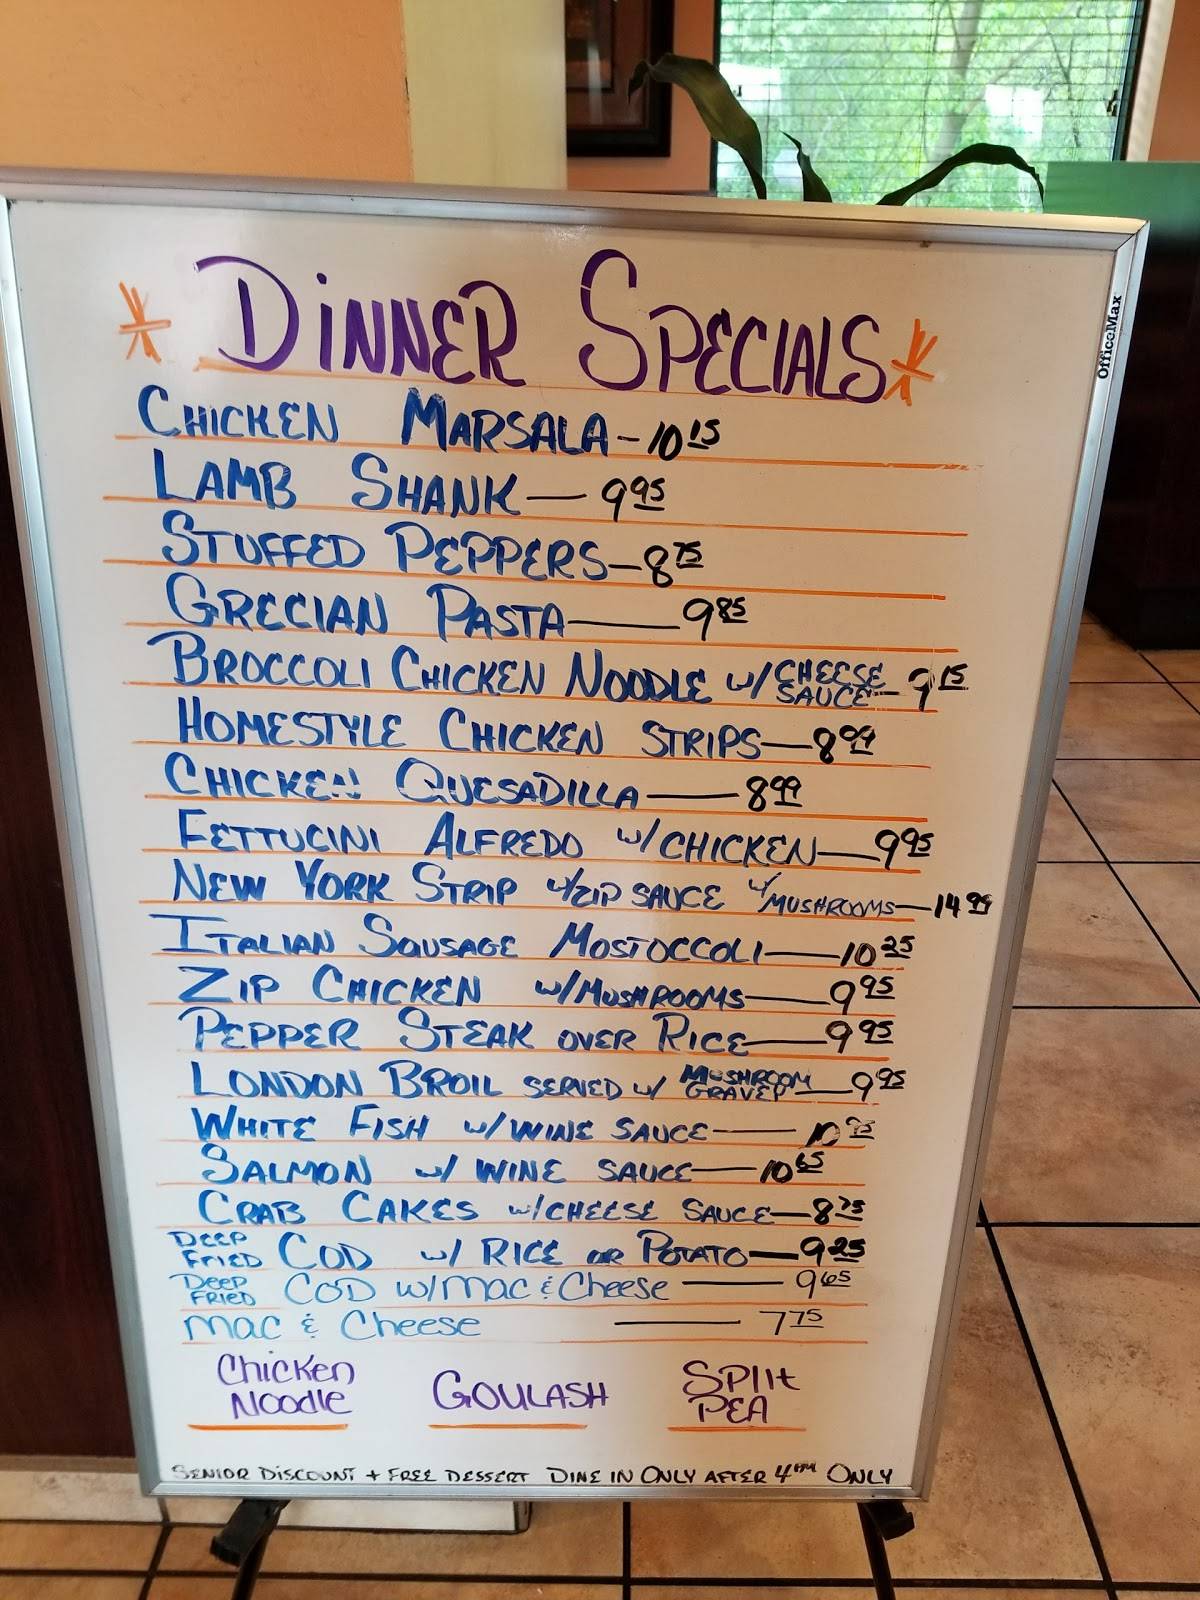 * DINNER SPECIALS *
OfficeMax
CHICKEN MARSALA - 10 15
LAMB SHANK — 9 95
STUFFED PEPPERS — 8 75
GRECIAN PASTA — 9 85
BROCCOLI CHICKEN NOODLE W/ CHEESE SAUCE — 9 15
HOMESTYLE CHICKEN STRIPS — 8 99
CHICKEN QUESADILLA — 8 99
FETTUCINI ALFREDO W/ CHICKEN — 9 95
NEW YORK STRIP W/ ZIP SAUCE W/ MUSHROOMS — 14 99
ITALIAN SAUSAGE MOSTOCCOLI — 10 25
ZIP CHICKEN W/ MUSHROOMS — 9 95
PEPPER STEAK OVER RICE — 9 95
LONDON BROIL SERVED W/ MUSHROOM GRAVEY — 9 95
WHITE FISH W/ WINE SAUCE — 10
SALMON W/ WINE SAUCE — 10 65
CRAB CAKES W/ CHEESE SAUCE — 8 75
DEEP FRIED COD W/ RICE OR POTATO — 9 25
DEEP FRIED COD W/ MAC & Cheese — 9 65
Mac & Cheese — 7 75
Chicken Noodle GOULASH SPlit PEA
SENIOR DISCOUNT + FREE DESSERT DINE IN ONLY AFTER 4 PM ONLY